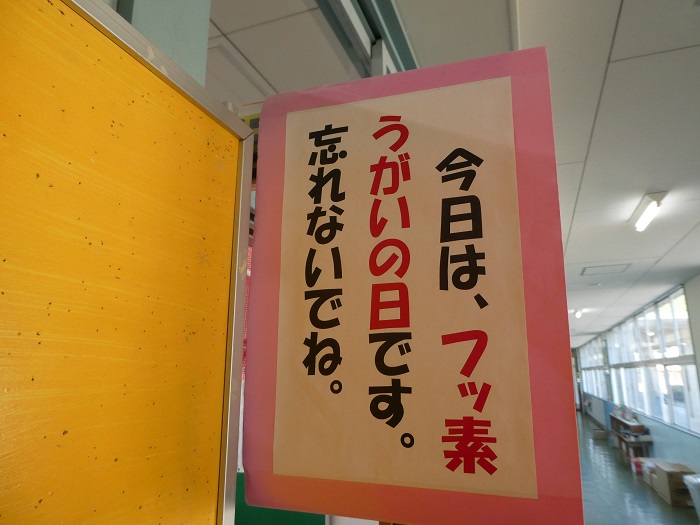 今日は、フッ素
うがいの日です。
忘れないでね。